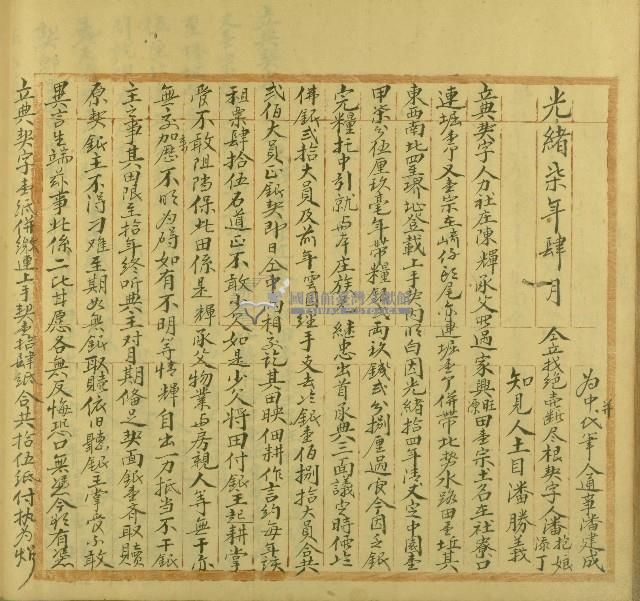 并
為中代筆人通事潘建成
知見人土目潘勝義
仝立找絕壳斷尽根契字人潘抱娘
添丁
光緒柒年肆月
立典契字人力社庄陳輝承父
遇家興旺田壹宗土名在社寮口
連堀壹介又壹宗在崎仔
尾宗連堀壹介併帶北勢水路田壹坵其
東西南北四至界址登載上手契內明白因光緒拾四年清丈定中國壹
甲柒分伍厘玖毫年帶糧銀
両玖錢弍分捌厘
今因乏銀
完糧托中引就与本庄族
継忠出首承典三面議定時値
佛銀弍拾大員及前年
継手支去
銀壹佰捌拾大員合共
弍佰大員正銀契即日仝中両相交訖其田映佃耕作言約每年
租粟肆拾伍石道正不敢少欠如是少欠將田付銀主起耕掌
管不敢阻擋保此田係是輝承父物業与房親人等無干亦
無交加
不明為碍如有不明等情輝自出一力抵当不干銀
主之事其田限至拾年終听典主对月期備足契面銀壹齊取贖
原契銀主不得刁难至期如無銀取贖依旧聽銀主掌管不敢
異言生端茲事此係二比甘愿各無反悔恐口無憑今欲有憑
立典契字壹紙併繳連上手契壹拾肆紙合共拾伍紙付执為炤
國史館臺灣文獻館